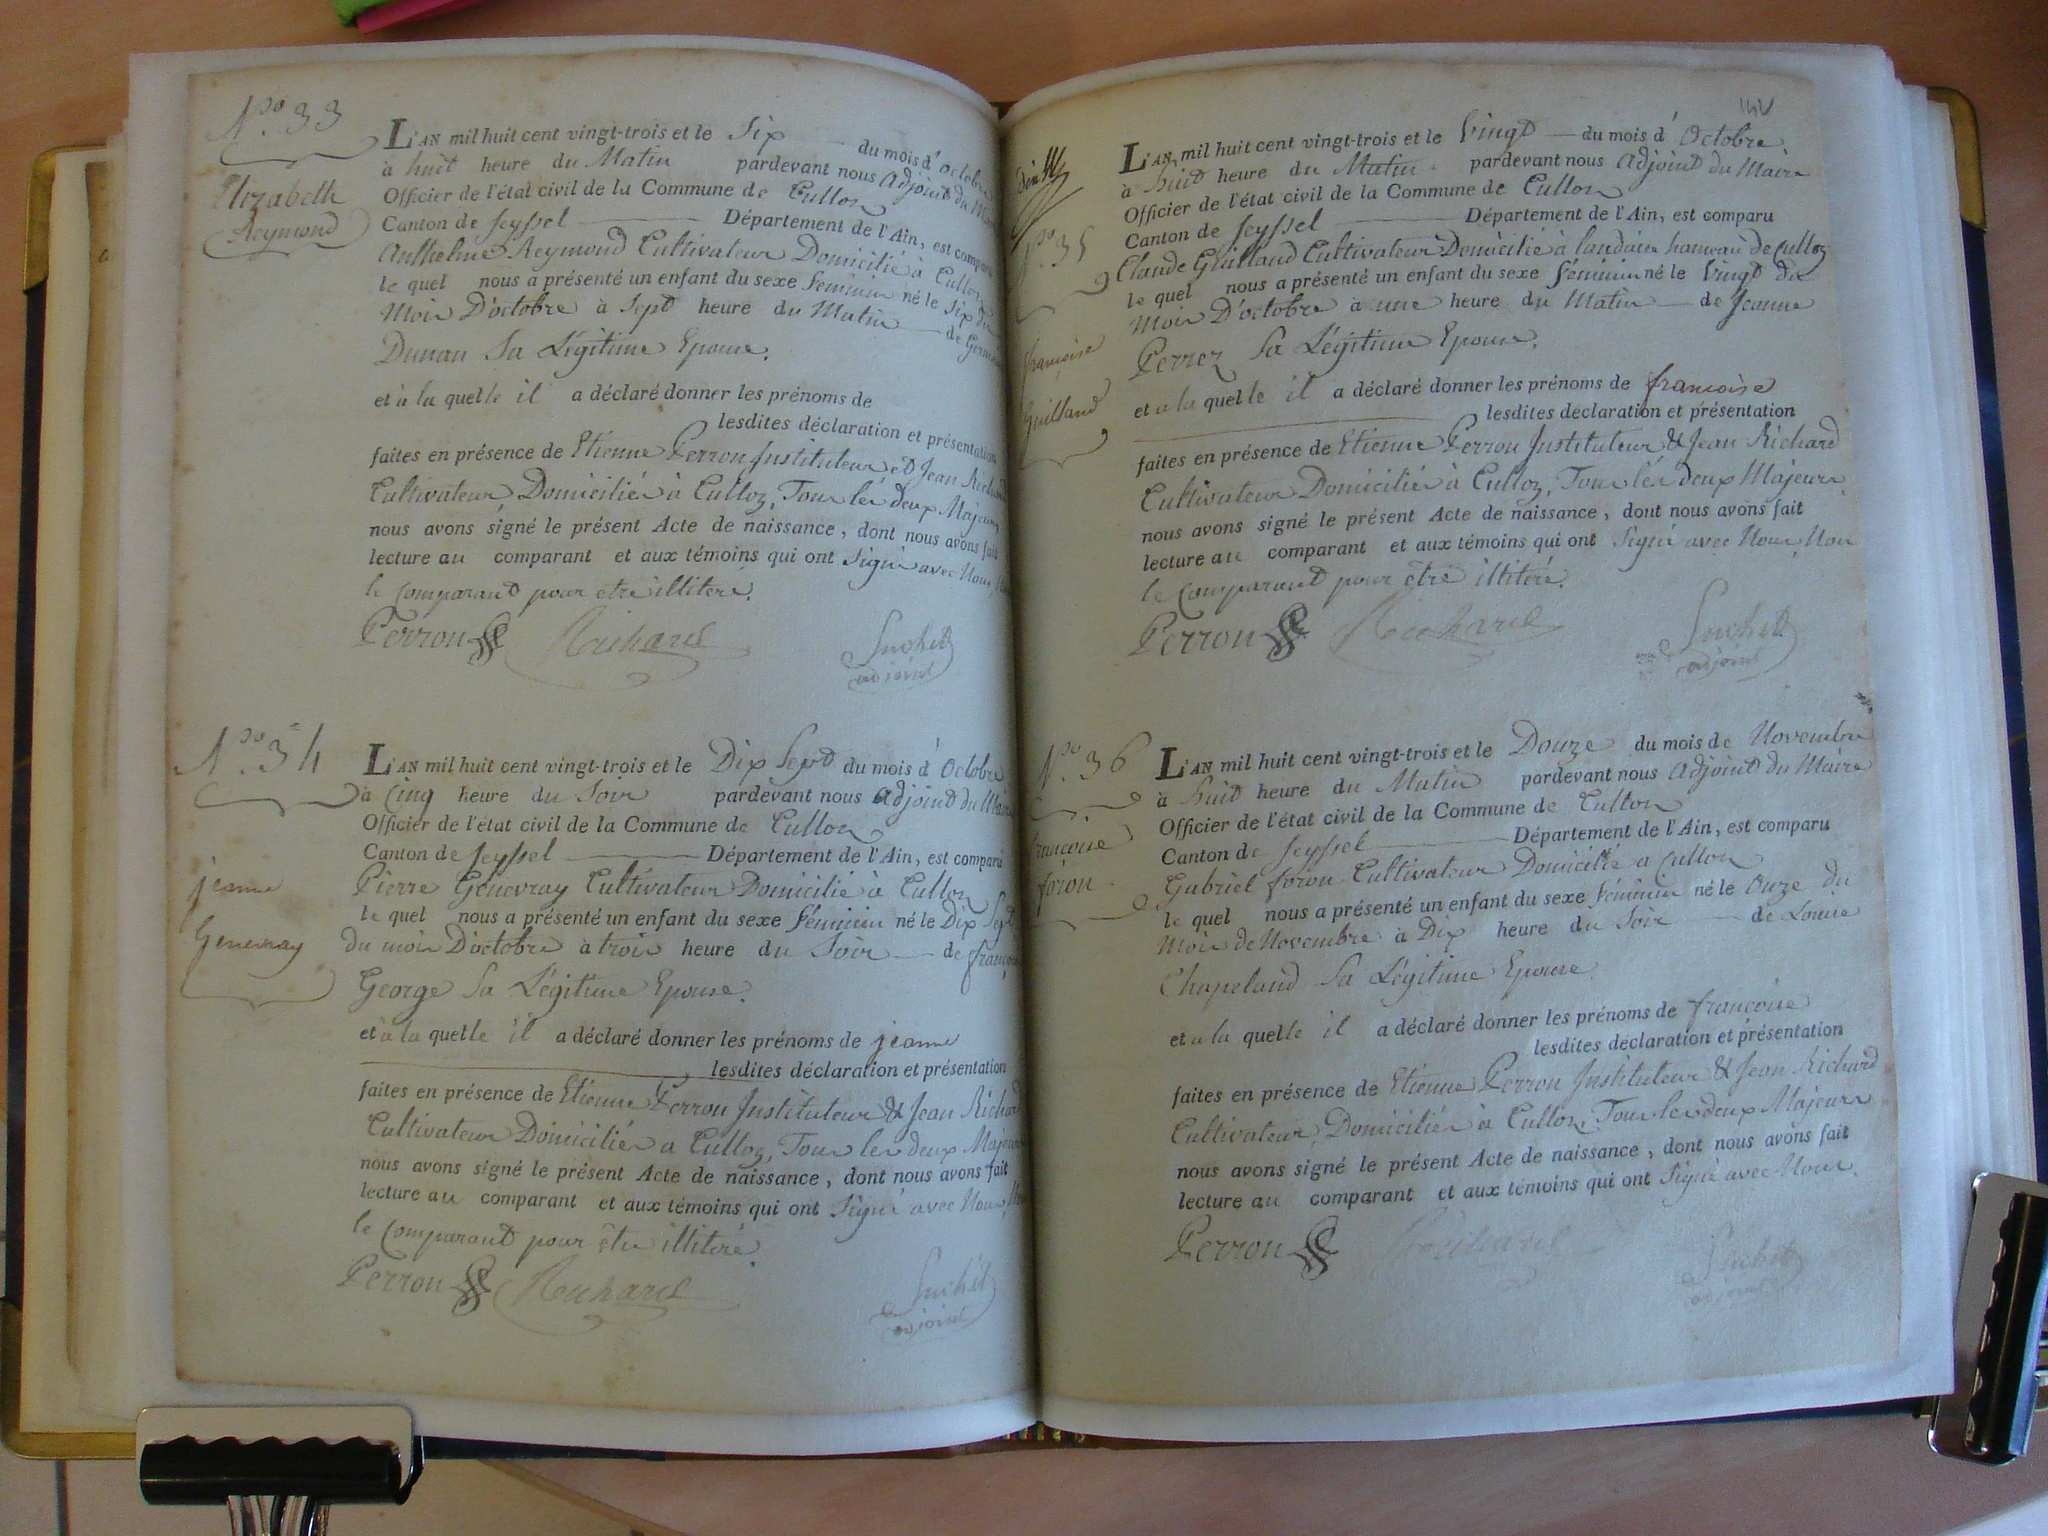 N.º 33
Elizabeth
Reymond
L'AN mil huit cent vingt-trois et le Six du mois d'octobre
à huit heure du Matin pardevant nous Adjoint du
Officier de l'état civil de la Commune de Culloz
Canton de Seyssel Département de l'Ain, est comparu
Anthelme Reymond Cultivateur Domicilié à Culloz
le quel nous a présenté un enfant du sexe féminin né le Six du
Mois D'octobre à Sept heure du Matin de
Dunan Sa Légitime Epouse.
et à la quelle il a déclaré donner les prénoms de
lesdites déclaration et présentation
faites en présence de Etienne Perron Instituteur et Jean Richard
Cultivateur Domiciliés à Culloz, Tous les deux Majeurs,
nous avons signé le présent Acte de naissance, dont nous avons fait
lecture au comparant et aux témoins qui ont Signé avec Nous,
le Comparant pour etre illiteré.
Perron Richard Suchet
adjoint
N.º 34
jeanne
Genevray
L'AN mil huit cent vingt-trois et le Dix Sept du mois d'Octobre
à Cinq heure du Soir pardevant nous Adjoint du Maire
Officier de l'état civil de la Commune de Culloz
Canton de Seyssel Département de l'Ain, est comparu
Pierre Genevray Cultivateur Domicilié à Culloz
le quel nous a présenté un enfant du sexe féminin né le Dix Sept
du mois D'octobre à trois heure du Soir de
George Sa Légitime Epouse.
et à la quelle il a déclaré donner les prénoms de jeanne
lesdites déclaration et présentation
faites en présence de Etienne Perron Instituteur & Jean Richard
Cultivateur Domiciliés a Culloz, Tous les deux Majeurs
nous avons signé le présent Acte de naissance, dont nous avons fait
lecture au comparant et aux témoins qui ont Signé avec Nous,
le Comparant pour être illiteré.
Perron Richard Suchet
adjoint
N.º 35
françoise
Guilland
L'AN mil huit cent vingt-trois et le Vingt du mois d'Octobre
à huit heure du Matin pardevant nous Adjoint du Maire
Officier de l'état civil de la Commune de Culloz
Canton de Seyssel Département de l'Ain, est comparu
Claude Guilland Cultivateur Domicilié à landaize hameau de Culloz
le quel nous a présenté un enfant du sexe féminin né le Vingt du
Mois D'octobre à une heure du Matin de Jeanne
Perrez Sa Légitime Epouse.
et a la quelle il a déclaré donner les prénoms de françoise
lesdites déclaration et présentation
faites en présence de Etienne Perron Instituteur & Jean Richard
Cultivateur Domiciliés à Culloz, Tous les deux Majeurs
nous avons signé le présent Acte de naissance, dont nous avons fait
lecture au comparant et aux témoins qui ont Signé avec Nous Non
le Comparant pour être illiteré.
Perron Richard Suchet
adjoint
N.º 36
françoise
foron
L'AN mil huit cent vingt-trois et le Douze du mois de Novembre
à huit heure du Matin pardevant nous Adjoint du Maire
Officier de l'état civil de la Commune de Culloz
Canton de Seyssel Département de l'Ain, est comparu
Gabriel foron Cultivateur Domicilié a Culloz
le quel nous a présenté un enfant du sexe féminin né le Onze du
Mois de Novembre à Dix heure du Soir de Louise
Chapeland Sa Légitime Epouse
et a la quelle il a déclaré donner les prénoms de françoise
lesdites déclaration et présentation
faites en présence de Etienne Perron Instituteur & Jean Richard
Cultivateur Domiciliés à Culloz, Tous les deux Majeurs
nous avons signé le présent Acte de naissance, dont nous avons fait
lecture au comparant et aux témoins qui ont Signé avec Nous.
Perron Richard Suchet
adjoint